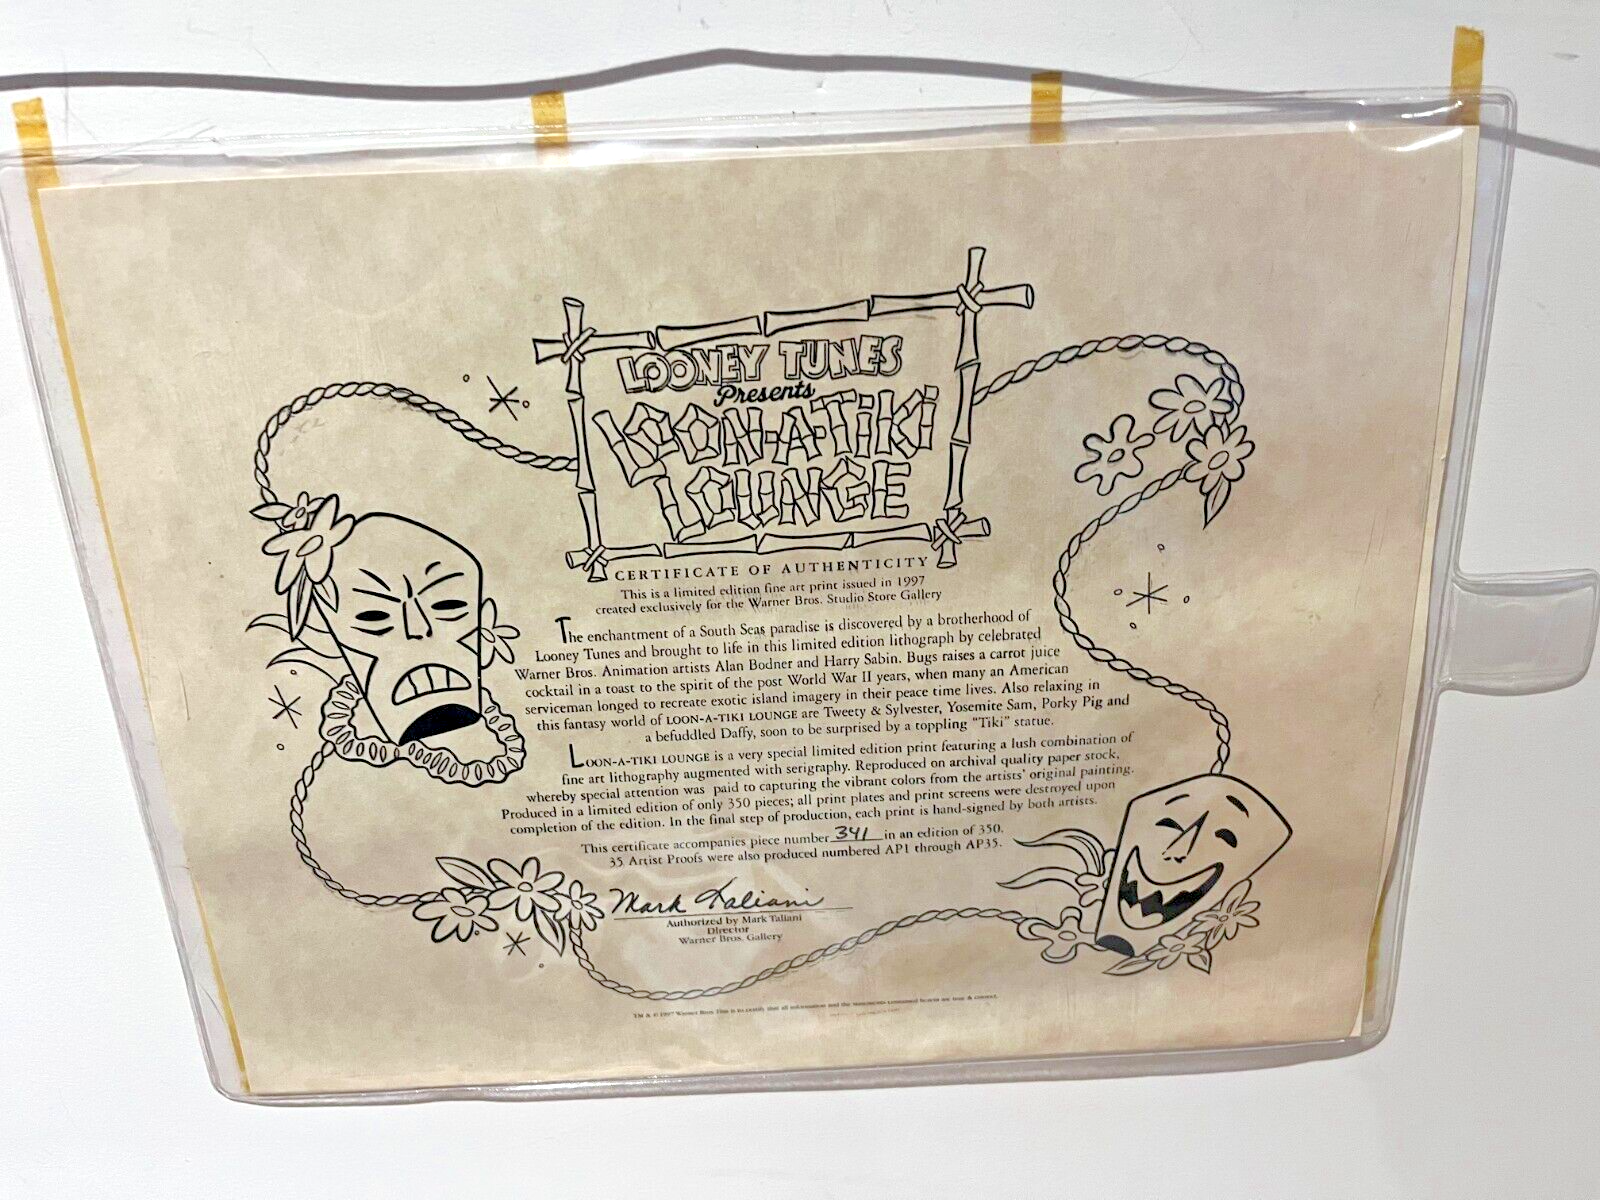 LOONEY TUNES
Presents
LOON-A-TiKi
LOUNGE
CERTIFICATE OF AUTHENTICITY
This is a limited edition fine art print issued in 1997
created exclusively for the Warner Bros. Studio Store Gallery
The enchantment of a South Seas paradise is discovered by a brotherhood of
Looney Tunes and brought to life in this limited edition lithograph by celebrated
Warner Bros. Animation artists Alan Bodner and Harry Sabin. Bugs raises a carrot juice
cocktail in a toast to the spirit of the post World War II years, when many an American
serviceman longed to recreate exotic island imagery in their peace time lives. Also relaxing in
this fantasy world of LOON-A-TIKI LOUNGE are Tweety & Sylvester, Yosemite Sam, Porky Pig and
a befuddled Daffy, soon to be surprised by a toppling "Tiki" statue.
LOON-A-TIKI LOUNGE is a very special limited edition print featuring a lush combination of
fine art lithography augmented with serigraphy. Reproduced on archival quality paper stock,
whereby special attention was paid to capturing the vibrant colors from the artists' original painting.
Produced in a limited edition of only 350 pieces; all print plates and print screens were destroyed upon
completion of the edition. In the final step of production, each print is hand-signed by both artists.
This certificate accompanies piece number 341 in an edition of 350.
35 Artist Proofs were also produced numbered AP1 through AP35.
Mark Taliani
Authorized by Mark Taliani
Director
Warner Bros. Gallery
TM & © 1997 Warner Bros. This is to certify that all information and the statements contained herein are true & correct.